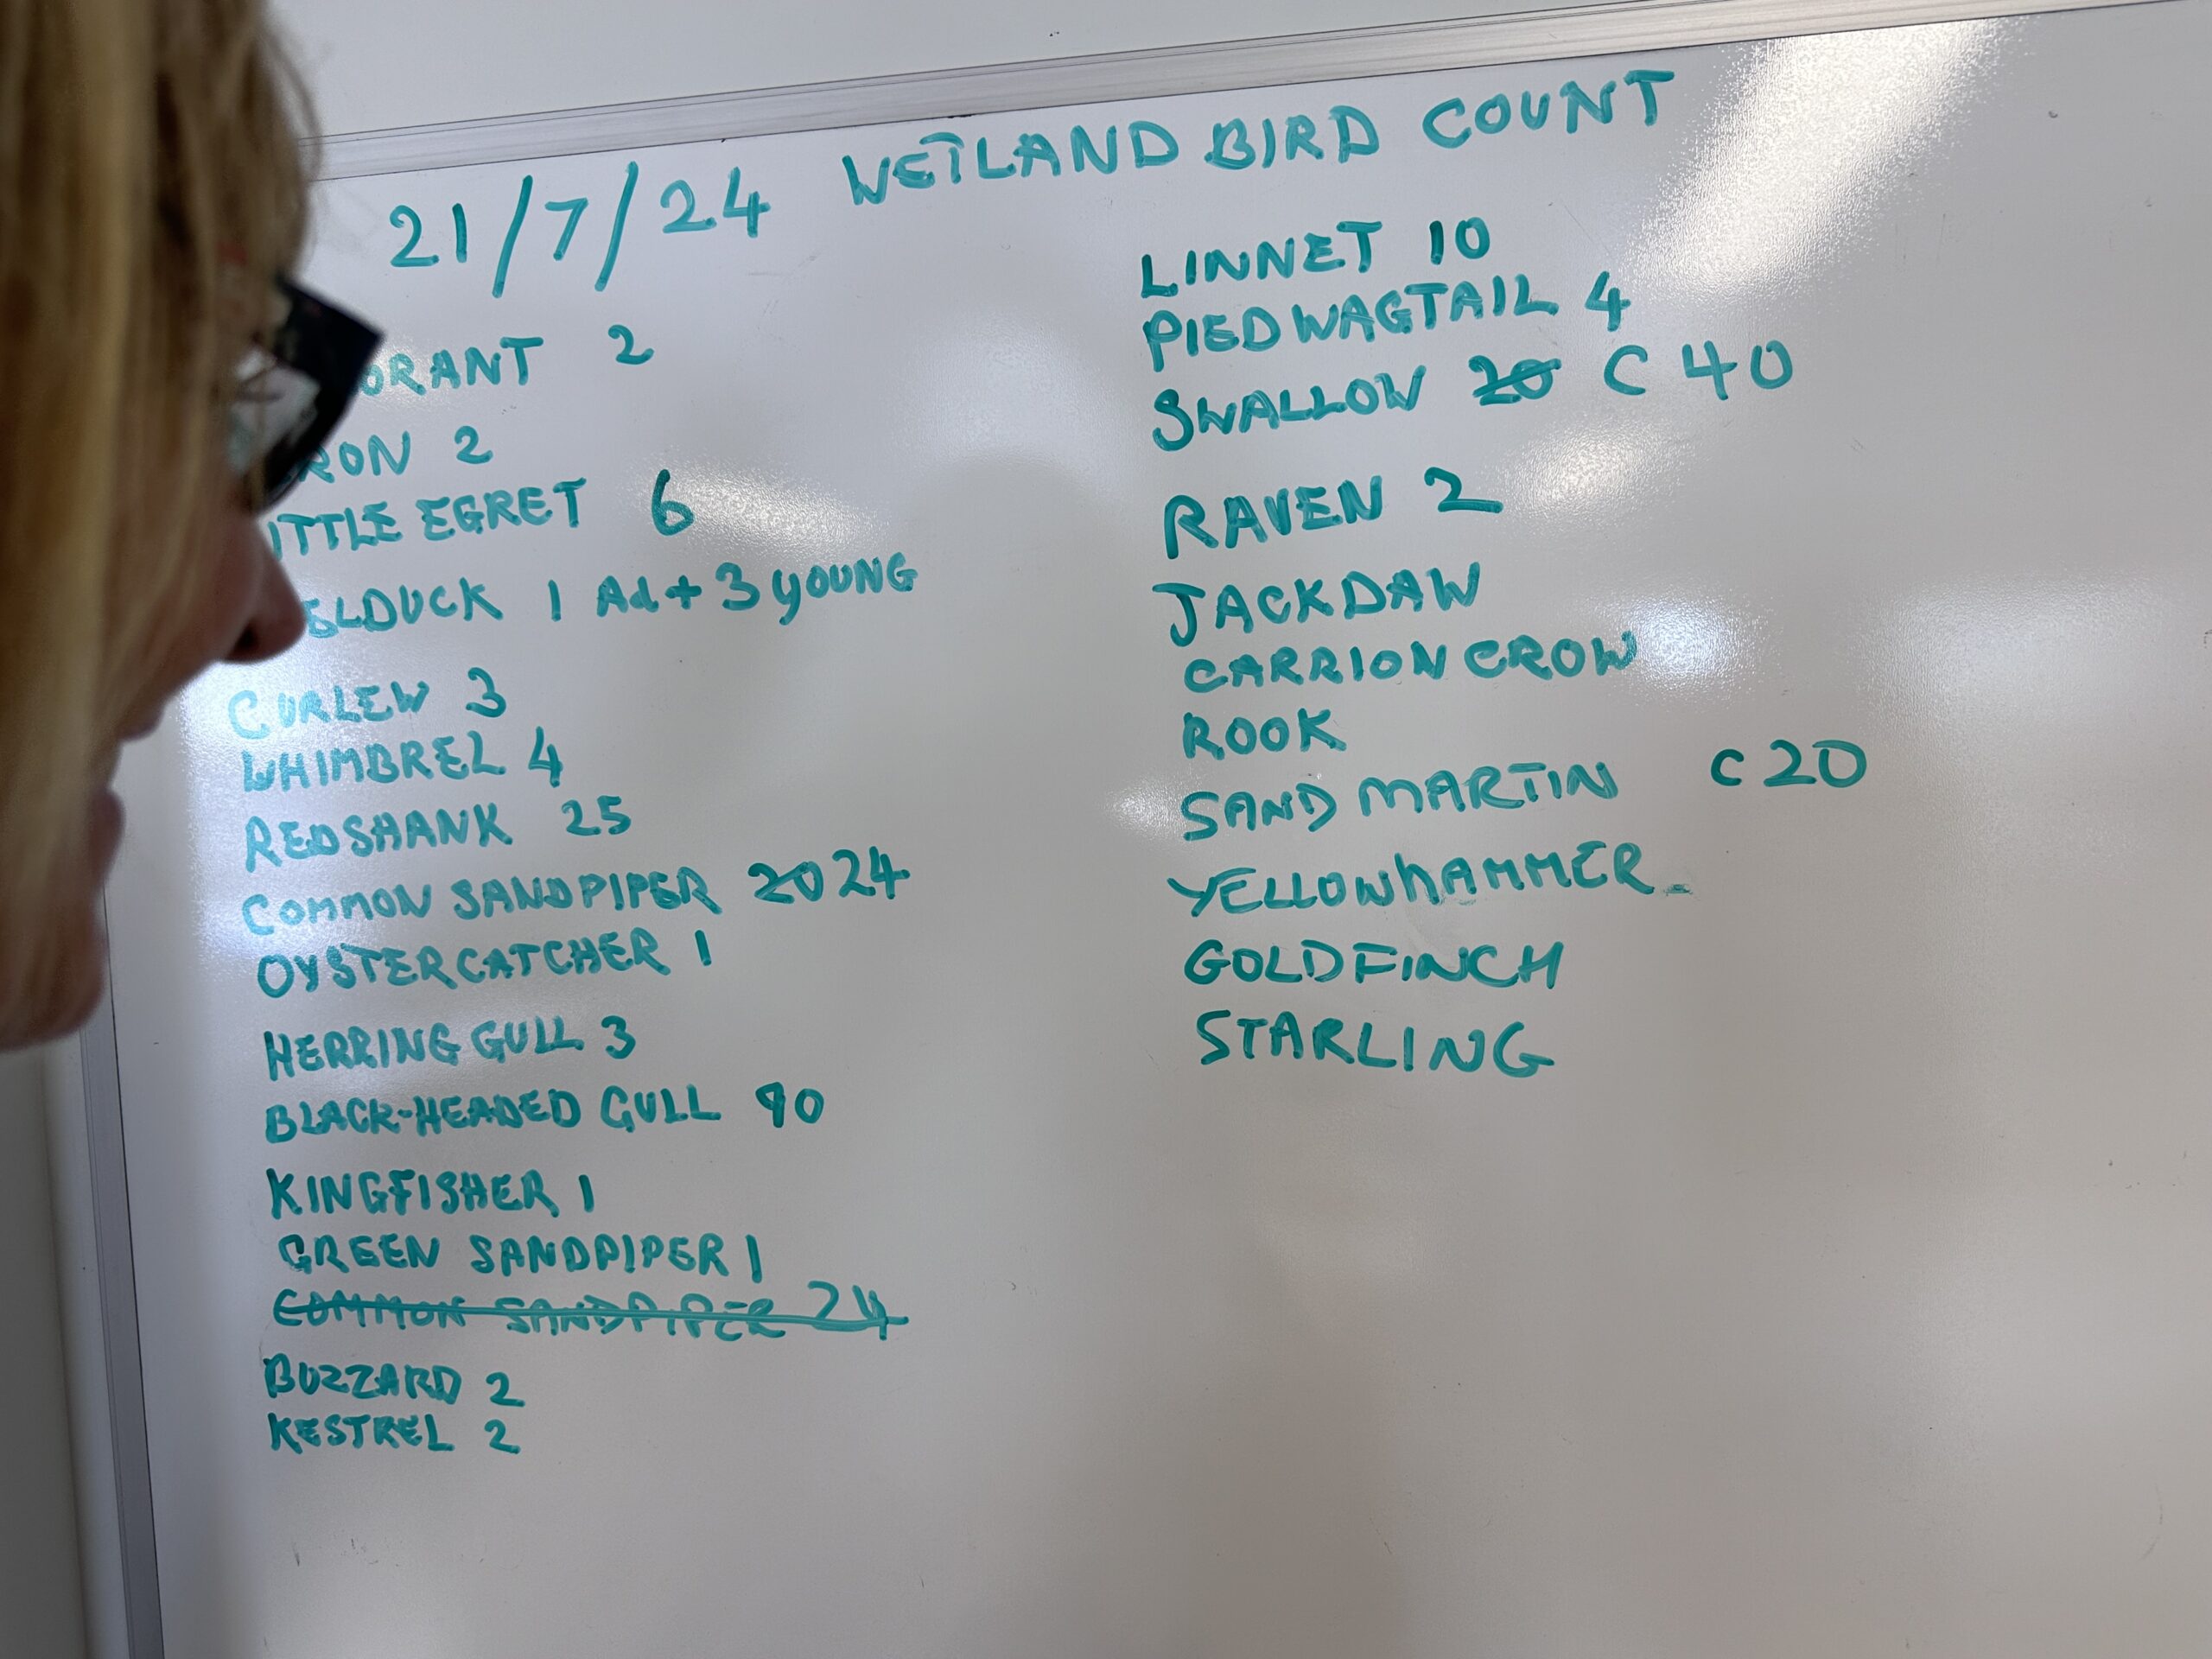 21/7/24 WETLAND BIRD COUNT
ORANT 2
RON 2
ITTLE EGRET 6
ELDUCK 1 Ad + 3 YOUNG
CURLEW 3
WHIMBREL 4
REDSHANK 25
COMMON SANDPIPER 20 24
OYSTERCATCHER 1
HERRING GULL 3
BLACK-HEADED GULL 90
KINGFISHER 1
GREEN SANDPIPER 1
COMMON SANDPIPER 24
BUZZARD 2
KESTREL 2
LINNET 10
PIED WAGTAIL 4
SWALLOW 20 C 40
RAVEN 2
JACKDAW
CARRION CROW
ROOK
SAND MARTIN C 20
YELLOWhAMMER
GOLDFINCH
STARLING